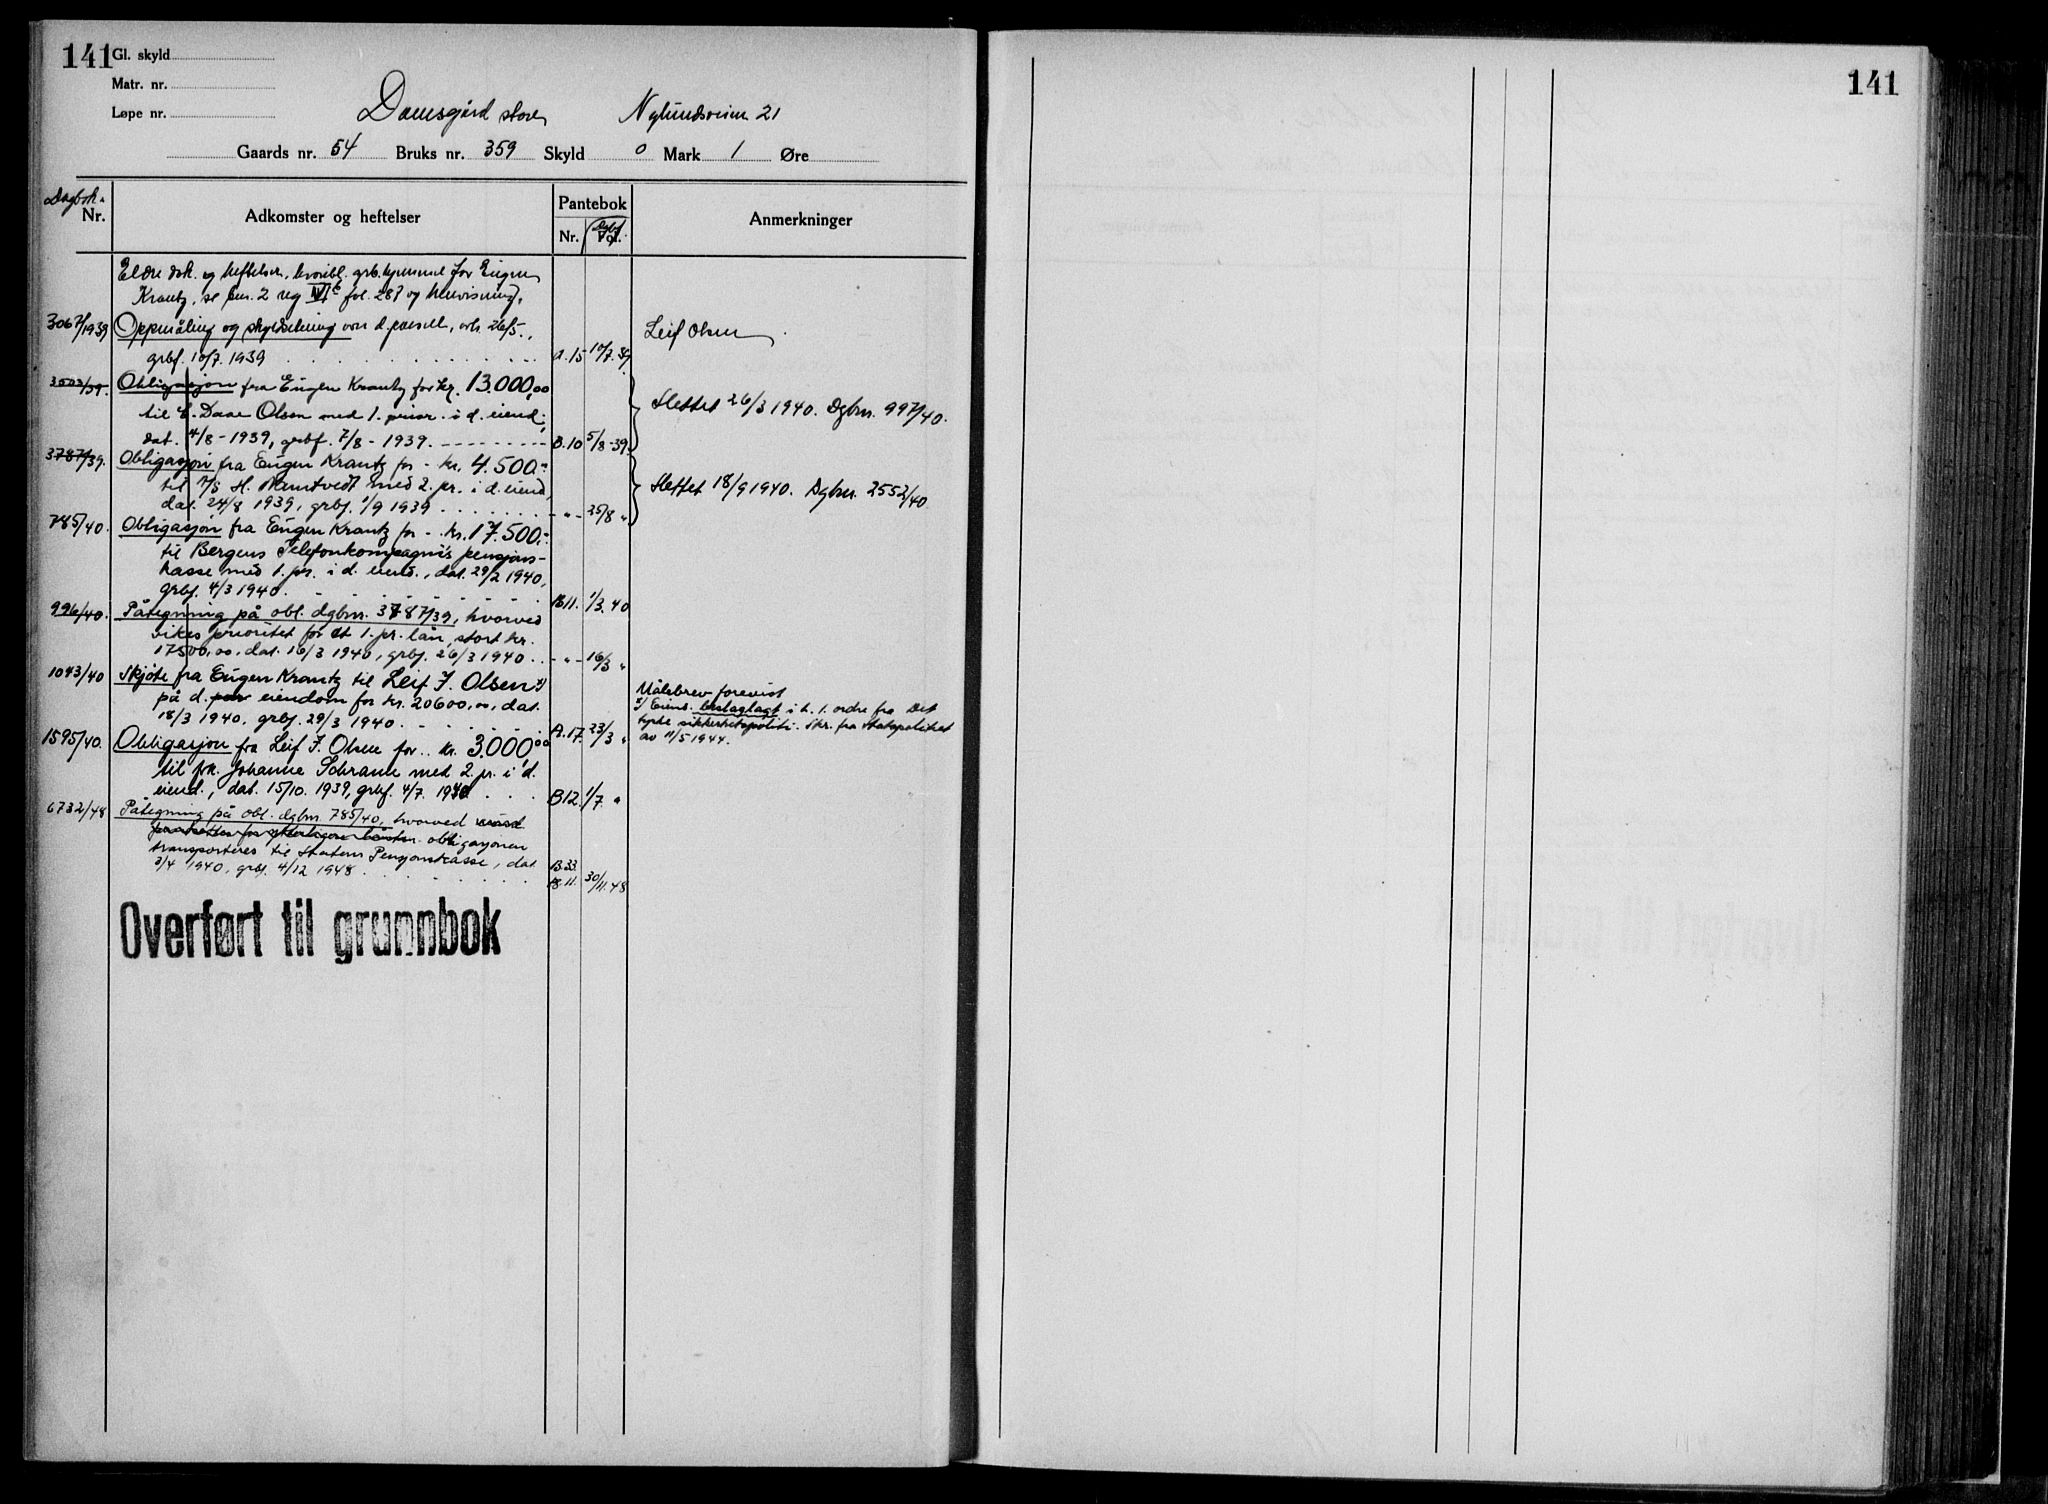 141
Gl. skyld
Matr. nr.
Løpe nr.
Damsgård store Nylundsveien 21
Gaards nr. 54 Bruks nr. 359 Skyld 0 Mark 1 Øre
Dagbok-
Nr.
Adkomster og heftelser
Pantebok
Nr.
Dagbf.
Fol.
Anmerkninger
Eldre dok. og heftelser, hvoribl. grb.hjemmel for Eugen
Krantz, se reg. fol. 287 og henvisning.
3067/1939 Oppmåling og skyldsetning over d. parsell, avh. 26/5.,
grbf. 10/7. 1939 A. 15 10/7. 39
Leif Olsen
3503/39. Obligasjon fra Eugen Krantz for kr. 13.000,00
til Daae Olsen med 1. prior. i d. eiend.,
dat. 4/8 - 1939, grbf. 7/8 - 1939. B. 10 5/8 - 39.
Slettet 26/3 1940. Dgbnr. 997/40.
3787/39. Obligasjon fra Eugen Krantz for - kr. 4.500.-
til A/S H. med 2. pr. i d. eiend.,
dat. 24/8 1939, grbf. 1/9 1939 - " - 25/8 "
Slettet 18/9 1940. Dgbnr. 2552/40
785/40. Obligasjon fra Eugen Krantz for - kr. 17.500.-
til Bergens Telefonkompagnis pensjons-
kasse med 1. pr. i d. eiend., dat. 29/2 1940,
grbf. 4/3 1940. B 11. 1/3. 40
996/40. Påtegning på obl. dgbnr. 3787/39, hvorved
vikes prioritet for et 1. pr. lån, stort kr.
17500,00, dat. 16/3 1940, grbf. 26/3 1940. - " - 16/3 "
1043/40 Skjøte fra Eugen Krantz til Leif J. Olsen x)
på d. eiendom for kr. 20600,00, dat.
18/3 1940, grbf. 29/3 1940. A. 17. 23/3 "
Målebrev forevist
x) Eiend. beslaglagt i h. t. ordre fra Det
tyske sikkerhetspoliti. Skr. fra Statspolitiet
av 11/5 1944.
1595/40. Obligasjon fra Leif J. Olsen for kr. 3.000,00
til frk. Johanne Schram med 2. pr. i d.
eiend., dat. 15/10. 1939, grbf. 4/7. 1940. B 12. 1/7. "
6732/48 Påtegning på obl. dgbnr. 785/40, hvorved
obligasjonen
transporteres til Statens Pensjonskasse, dat.
3/4 1940, grbf. 4/12 1948. B. 33.
B. 11. 30/11. 48
Overført til grunnbok
141